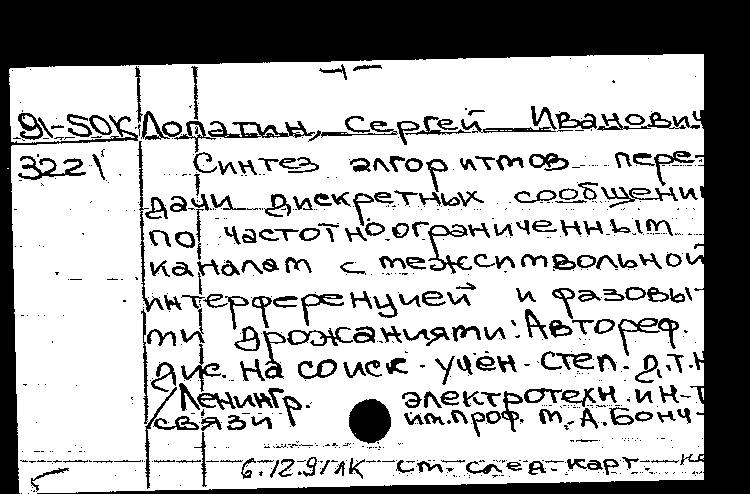 91-50К Лопатин, Сергей Иванович
3221 Синтез алгоритмов пере-
дачи дискретных сообщений
по частотноограниченным
каналам с межсимвольной
интерференцией и фазовы-
ми дрожаниями: Автореф.
дис. на соиск. учен. степ. д.т.н
/Ленингр. электротехн. ин-т
связи им. проф. М.А. Бонч-
6.12.91лк см. след. карт.